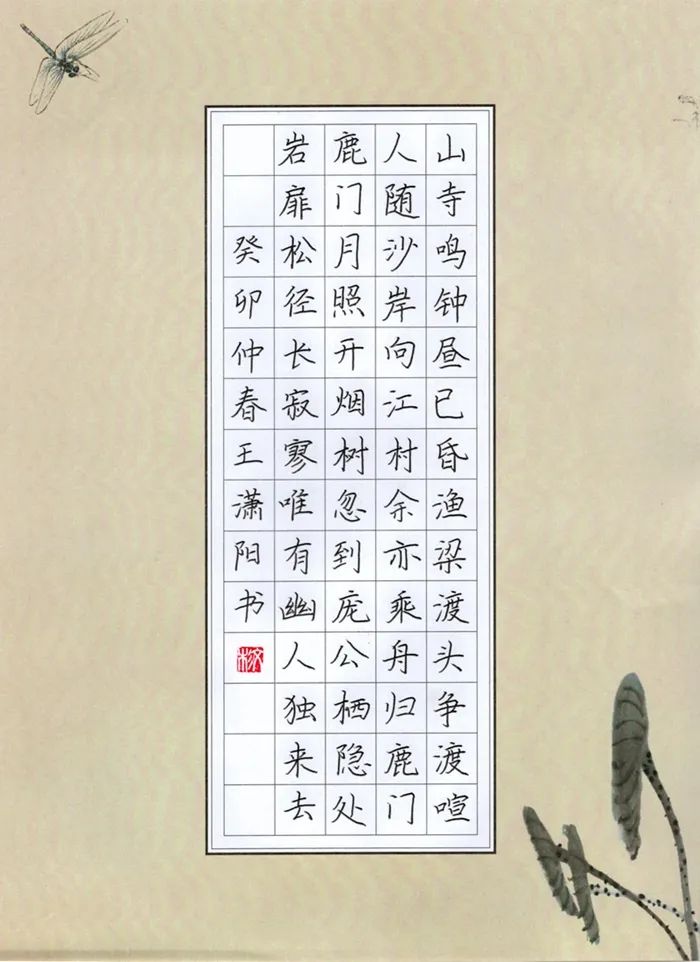 山寺鸣钟昼已昏渔梁渡头争渡喧
人随沙岸向江村余亦乘舟归鹿门
鹿门月照开烟树忽到庞公栖隐处
岩扉松径长寂寥唯有幽人独来去
癸卯仲春王潇阳书